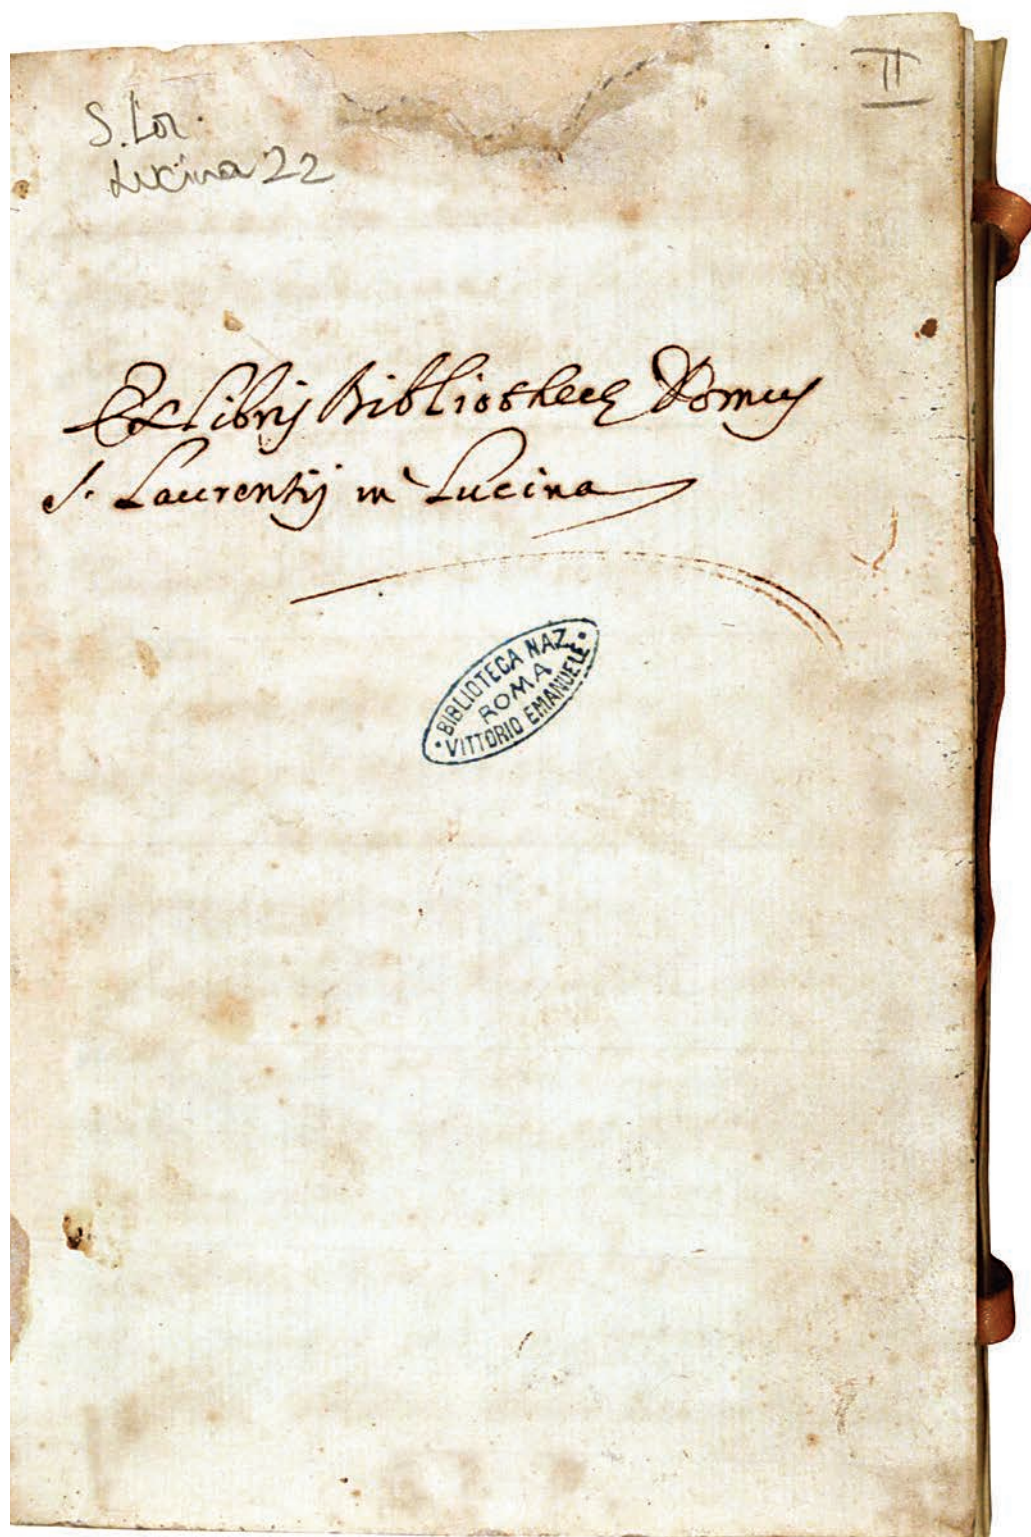 II
S. Lor.
Lucina 22
Ex Libris Bibliothecę Domus
S. Laurentij in Lucina
BIBLIOTECA NAZ.
ROMA
VITTORIO EMANUELE